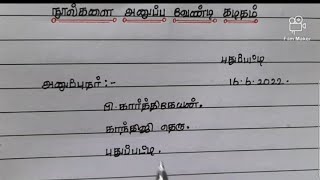 நூல்களை அனுப்ப வேண்டி கடிதம்
Film Maker
புதுப்பட்டி
16.6.2022.
அனுப்புநர் :-
பி. கார்த்திகேயன்.
காந்திஜி தெரு.
புதுப்பட்டி.